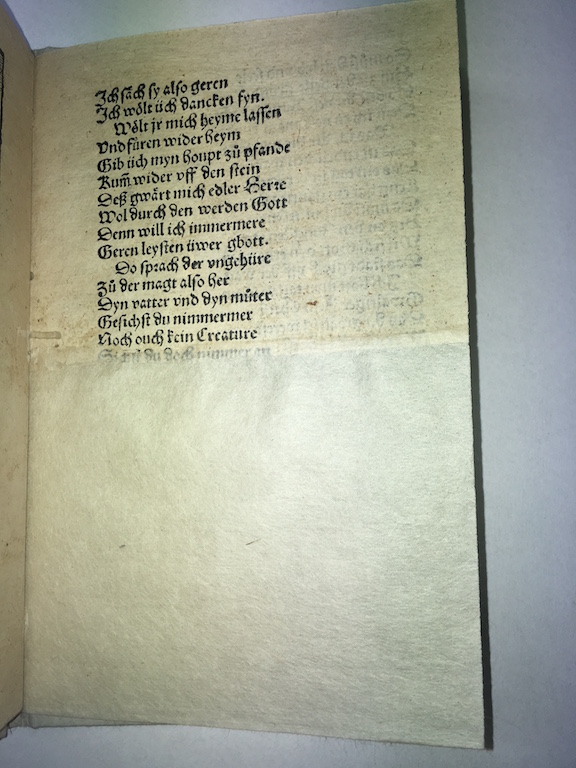 Jch sach sy also geren
Jch wölt üch dancken fyn.
Wölt jr mich heyme lassen
Vnd füren wider heym
Gib üch myn houpt zů pfande
Kum̃ wider vff den stein
Deß gwärt mich edler Herre
Wol durch den werden Gott
Denn will ich immermere
Geren leysten üwer gbott.
Do sprach der vngehüre
Zů der magt also her
Dyn vatter vnd dyn můter
Gesichst du nimmermer
Noch ouch kein Creature
du doch nimmer an